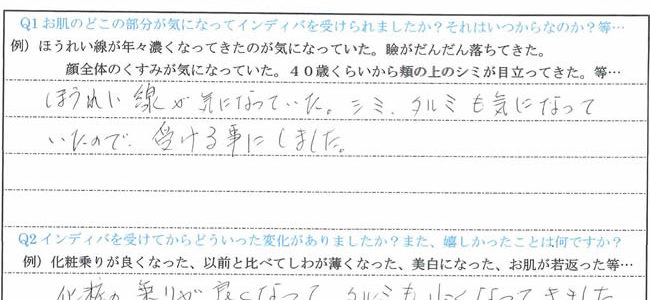 Q1お肌のどこの部分が気になってインディバを受けられましたか？それはいつからなのか？等…
例）ほうれい線が年々濃くなってきたのが気になっていた。瞼がだんだん落ちてきた。
顔全体のくすみが気になっていた。４０歳くらいから頬の上のシミが目立ってきた。等…
ほうれい線が気になっていた。シミ、タルミも気になって
いたので、受ける事にしました。
Q2インディバを受けてからどういった変化がありましたか？また、嬉しかったことは何ですか？
例）化粧乗りが良くなった、以前と比べてしわが薄くなった、美白になった、お肌が若返った等…
化粧の乗りが良くなって、タルミも小さくなってきました